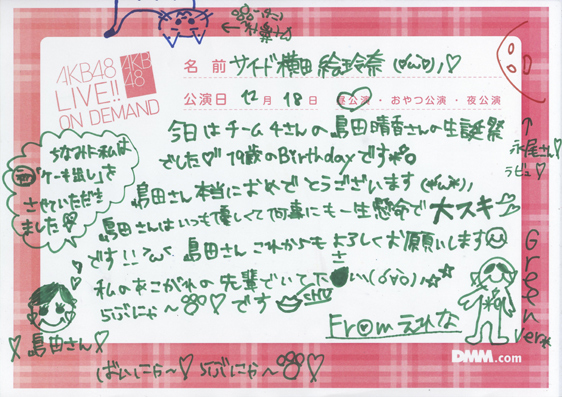 AKB48
LIVE!!
ON DEMAND
AKB
48
名 前 サイド横田 絵玲奈 (♡ω♡)ノ♡
公演日 12月 18日 昼公演・おやつ公演・夜公演
今日はチーム4さんの島田晴香さんの生誕祭
でした♡ 19歳のBirthdayです
島田さん本当におめでとうございます
島田さんはいつも優しくて何事にも一生懸命で大スキ
です!! >ω< 島田さん これからもよろしくお願いします
私のあこがれの先輩でいて下さい
らぶにゃ〜♡です
From えれな
ちなみに私は
ケーキ出しを
させていただき
ました
♡島田さん♡
ばいにゃ〜♡ らぶにゃ〜♡
↑
永尾さん
ラビュ♡
Green
ver
DMM.com